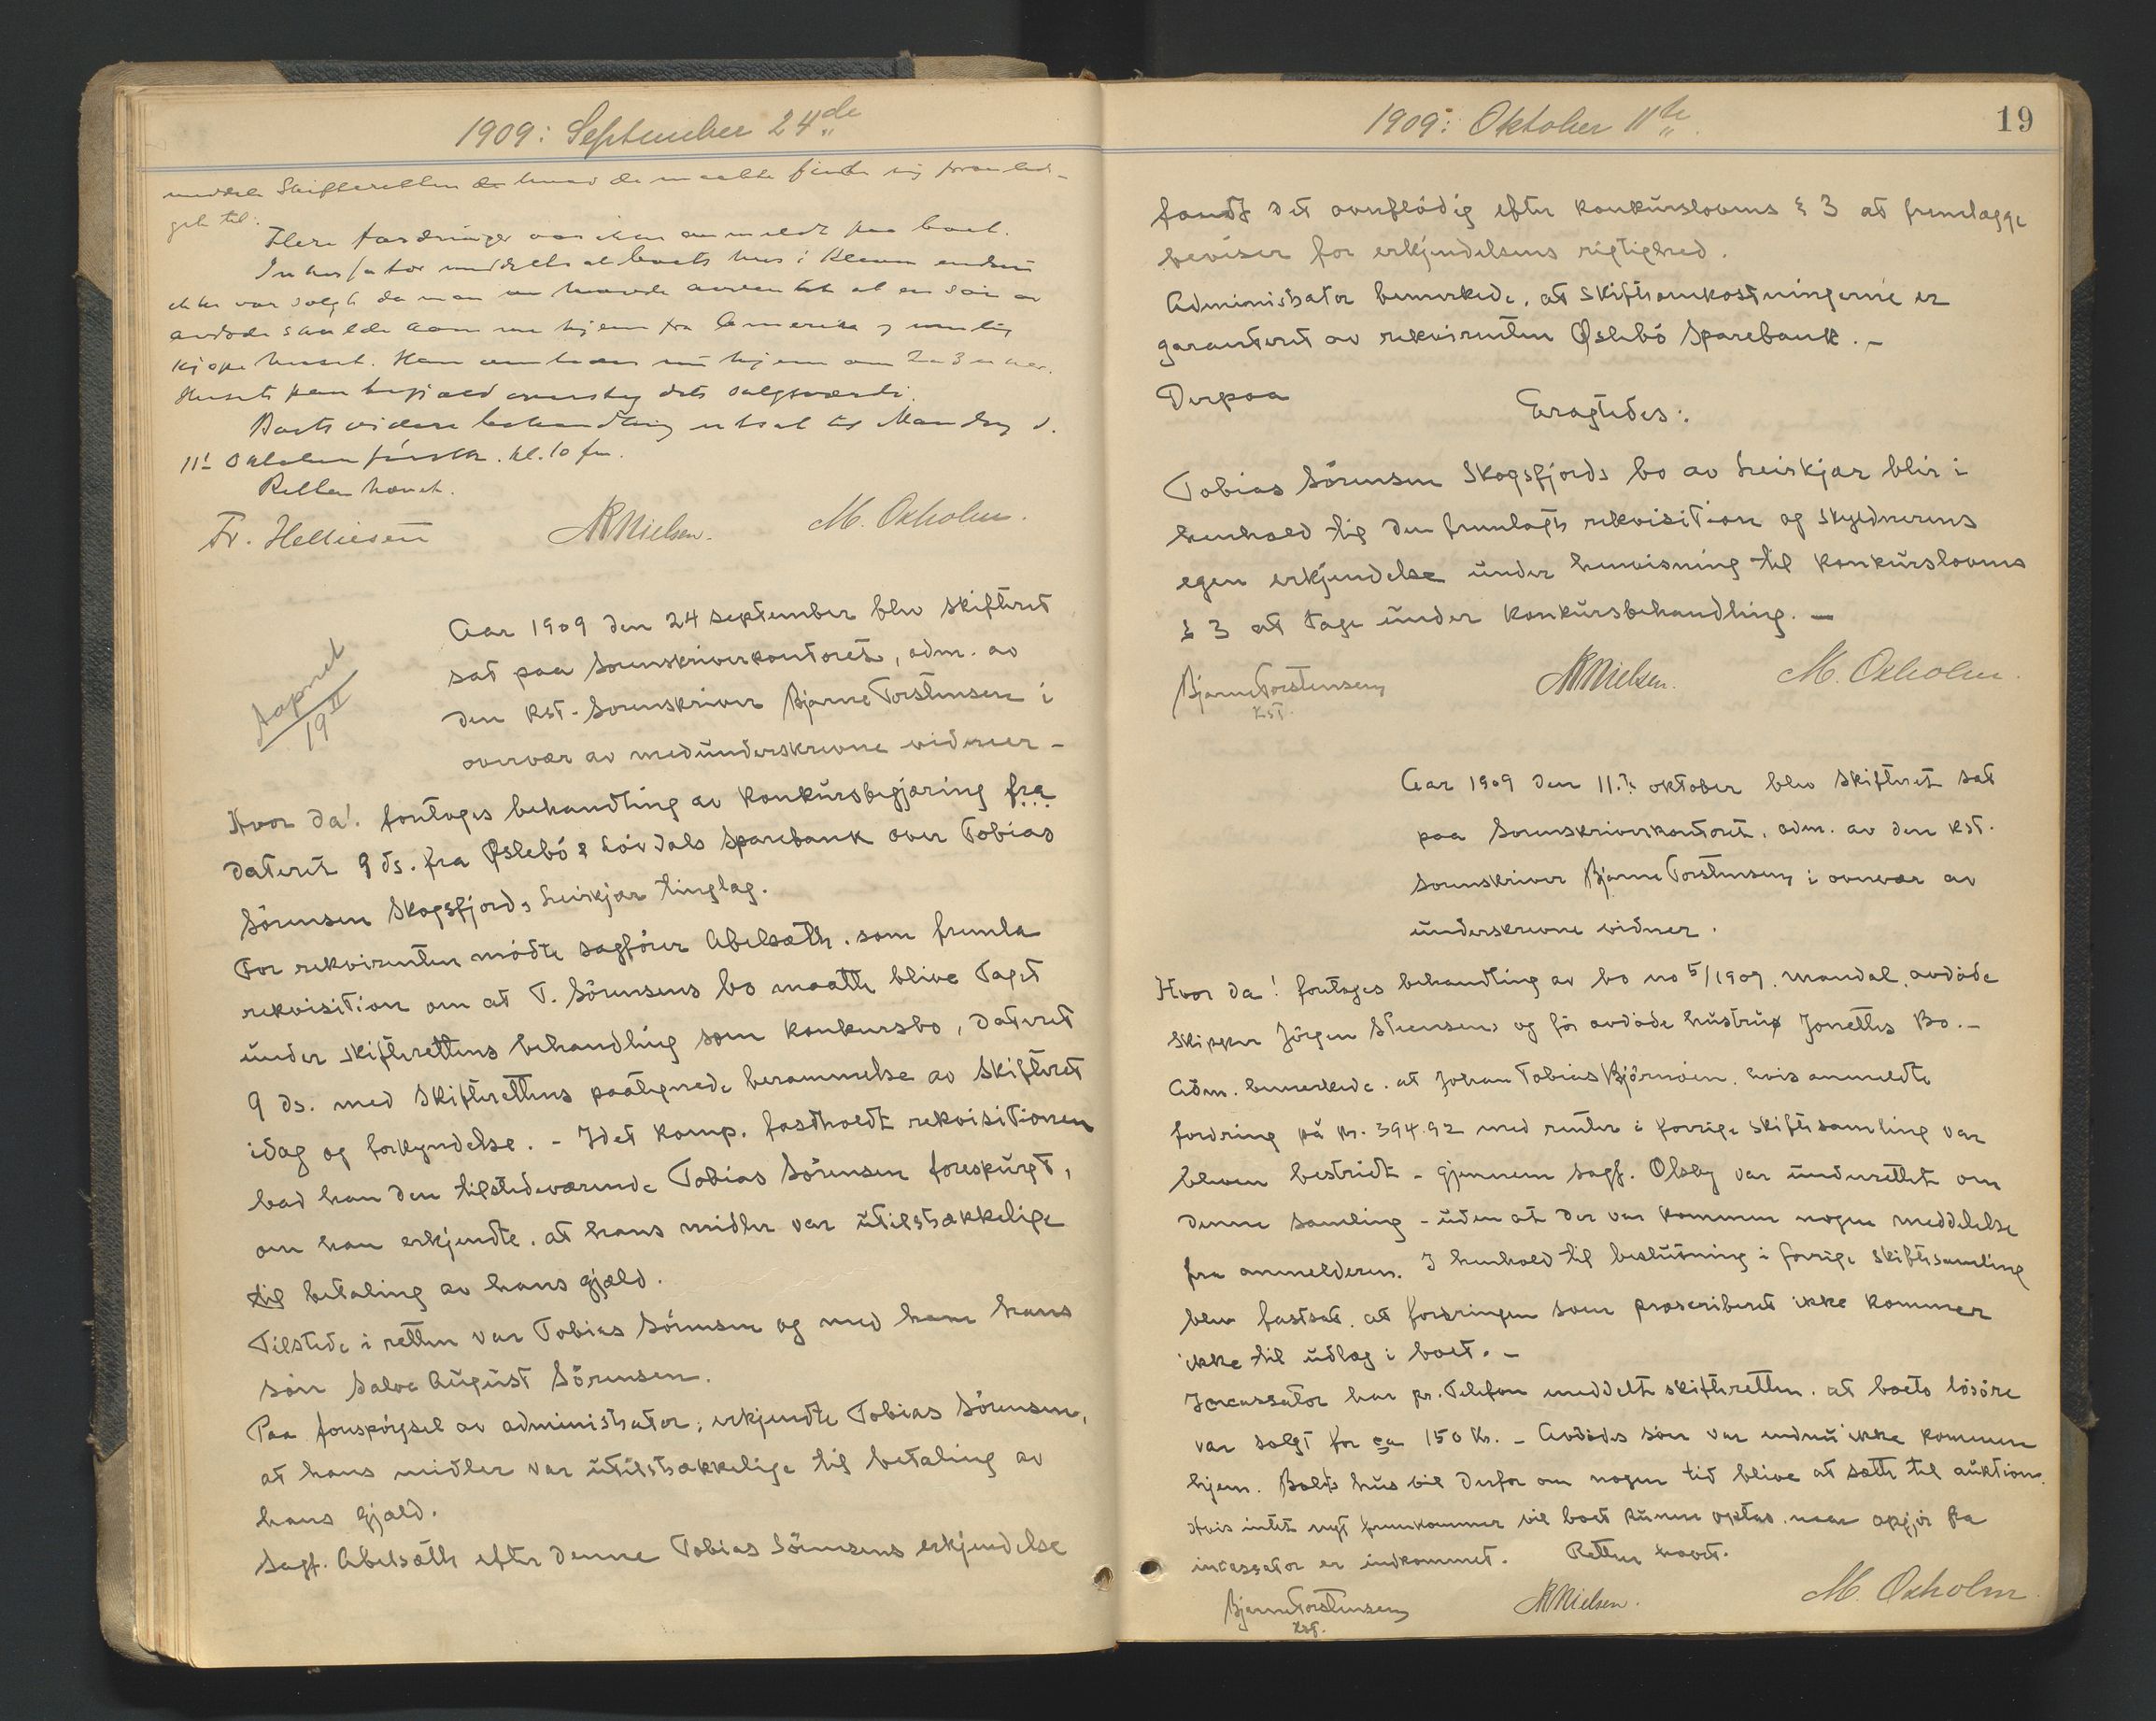 1909: September 24de
meddele Skifteretten hvad de maatte finde sig foranled-
get til.
Flere fordringer var ikke anmeldt paa boet.
Inkassator meddelte at boets hus i Kleven endnu
ikke var solgt da man havde at en søn av
avdøde skulde komme hjem fra Amerika og muligens
kjøpe huset. Han ventes nu hjem om 2 a 3 uker.
Husets salgsværdi.
Boets videre behandling utsat til Mandag d.
11t Oktober førstk. kl. 10 fm.
Retten hævet.
Fr. Helliesen NNielsen. M. Oxholm.
Aapnet
19 II
Aar 1909 den 24 september blev skifteret
sat paa Sorenskriverkontoret, adm. av
den kst. Sorenskriver Bjarne Torstensen i
overvær av medunderskrevne vidneer -
Hvor da! foretoges behandling av konkursbegjæring fra
dateret 9 ds. fra Øslebö & Lövdals Sparebank over Tobias
Sörensen Skogsfjord, tinglag.
For rekvirenten mödte sagförer Abelsæth. som fremla
rekvisition om at T. Sörensens bo maatte blive taget
under skifterettens behandling som konkursbo, dateret
9 ds. med Skifterettens paategnede berammelse av Skifteret
idag og forkyndelse. - Idet komp. fastholdt rekvisitionen
bad han den tilstedeværende Tobias Sörensen forespurgt,
om han erkjendte. at hans midler var utilstrækkelige
til betaling av hans gjæld.
Tilstede i retten var Tobias Sörensen og med ham hans
sön Salve August Sörensen.
Paa forespörgsel av administrator, erkjendte Tobias Sörensen,
at hans midler var utilstrækkelige til betaling av
hans Gjæld.
Sagf. Abelsæth efter denne Tobias Sörensens erkjendelse
1909: Oktober 11te
19
fandt det overflödig efter konkurslovens § 3 at fremlægge
beviser for erkjendelsens rigtighed.
Administrator bemerkede, at skifteomkostningerne er
garanteret av rekvirenten Øslebö Sparebank. -
Derpaa Eragtedes:
Tobias Sörensen Skogsfjords bo av blir i
henhold til den fremlagte rekvisition og skyldnerens
egen erkjendelse under henvisning til konkurslovens
§ 3 at tage under konkursbehandling. -
Bjarne Torstensen NNielsen. M. Oxholm.
kst.
Aar 1909 den 11.te oktober blev Skifteret sat
paa Sorenskriverkontoret. adm. av den kst.
Sorenskriver Bjarne Torstensen i overvær av
underskrevne vidner.
Hvor da! foretoges behandling av bo no 5/1909. Mandal, avdöde
Skipper Jörgen og för avdöde hustru Bo. -
Adm. bemerkede. at Johan Tobias Björnöen. hvis anmeldte
fordring på kr. 394.92 med renter i forrige skiftesamling var
bleven bestridt - gjennem sagf. Olsby var underrettet om
denne samling - uden at der var kommen nogen meddelelse
fra anmelderen. I henhold til beslutning i forrige skiftesamling
blev fastsat. at fordringen som præscriberet ikke kommer
ikke til udlæg i boet. -
Incassator har pr. Telefon meddelt skifteretten. at boets lösöre
var solgt for ca 150 Kr. - Avdödes sön var endnu ikke kommen
hjem. Boets hus vil derfor om nogen tid blive at sætte til auktion.
Hvis intet nyt fremkommer vil boet kunne optas. naar opgjör fra
incassator er indkommet. Retten hævet.
Bjarne Torstensen NNielsen. M. Oxholm
kst.